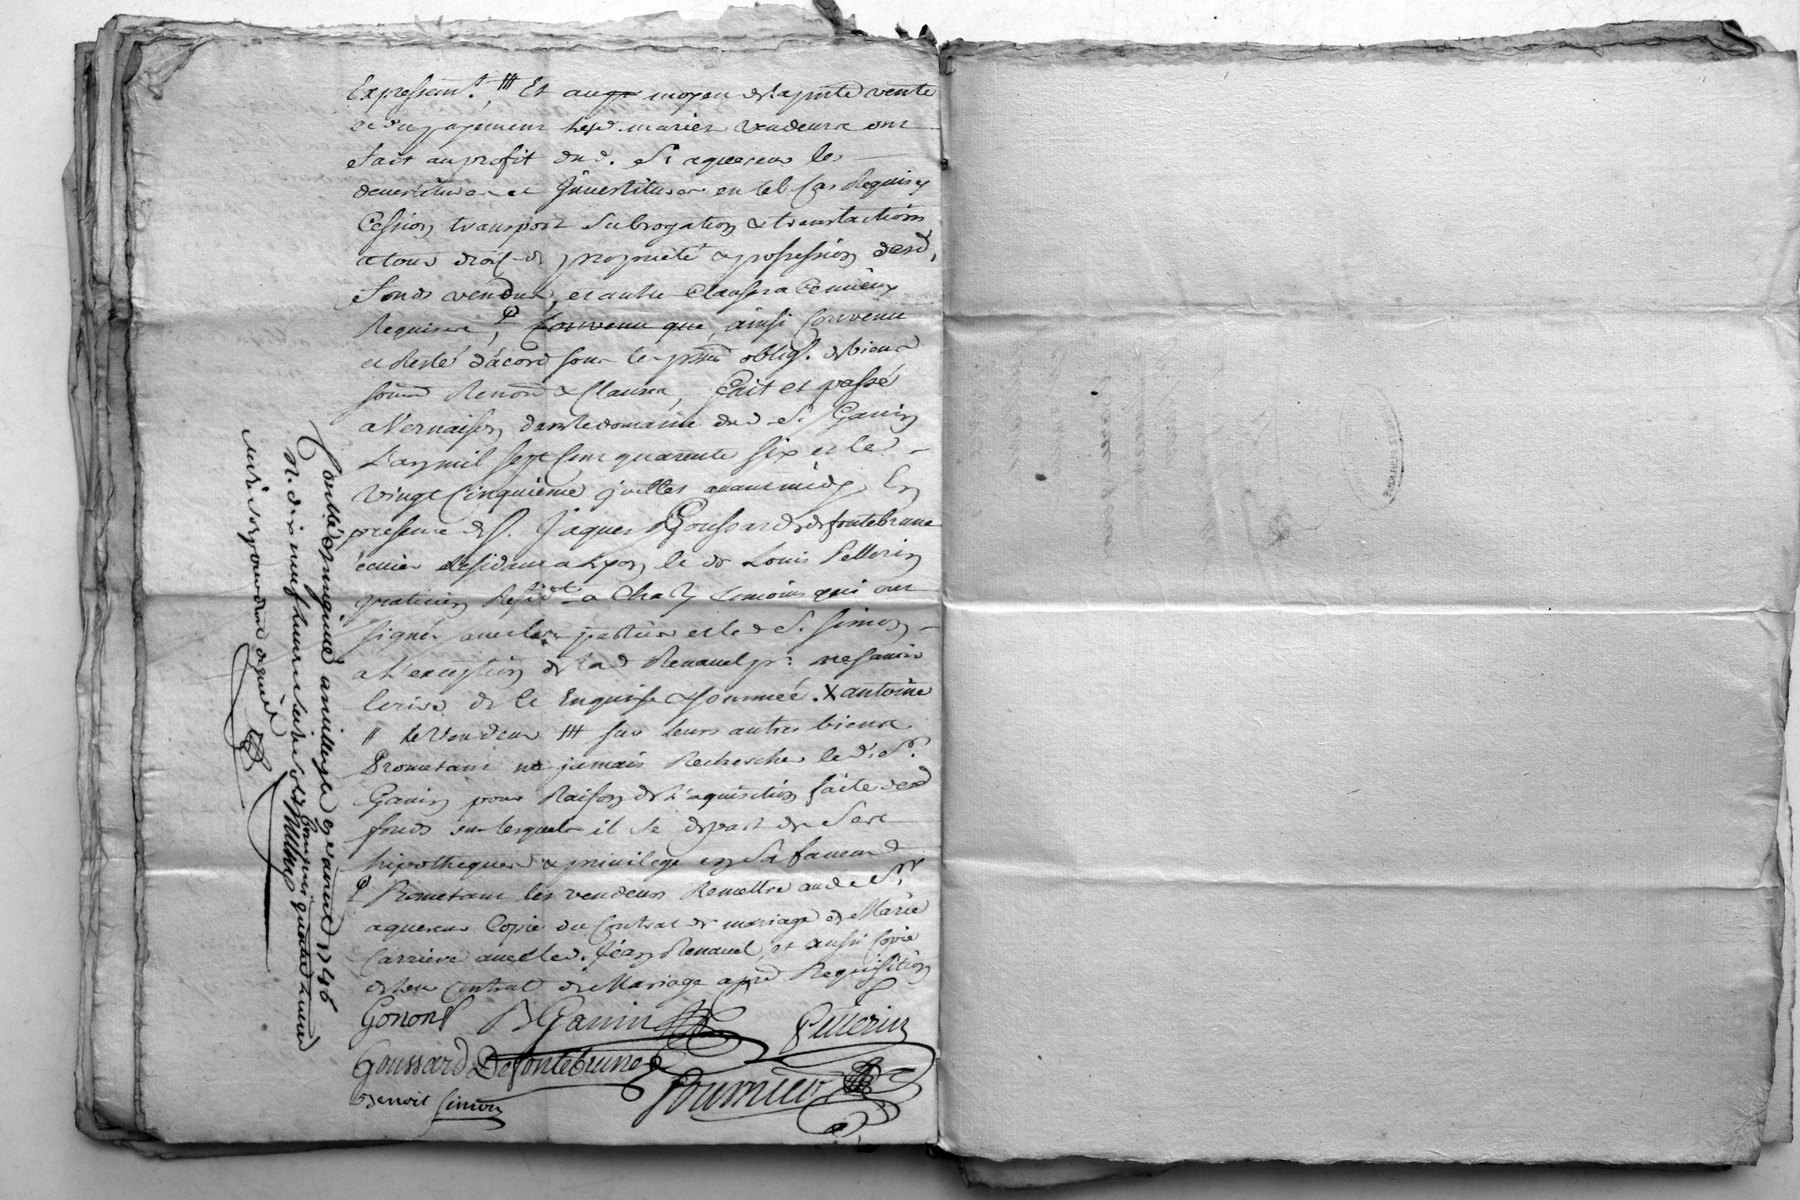 Expressem.t, ⧻ Et au moyen de la pnte vente
et du payement lesd. mariés vendeurs ont
fait au profit du d. Sr aquereur les
devestitures et Jnvestitures en tel cas Requises
Cession, transport subrogation & translation
a tous droits de proprieté & possession desd.
fonds vendus, et autres clauses a ce mieux
Requises, ꝑ Convenu que, ainsi convenu
et Resté d'acord sous les obligs. de biens
Renon & Clauses, Fait et passé
a Vernaison dans le domaine du d. S. Ganin
L'an mil sept Cent quarente six et le
vingt Cinquieme juillet avant midy, En
presence de S. Jaques Goussard de fontebrune
écuier Residant a Lyon, le Sr Louis Pellerin
praticien Resid.t a Charly temoins qui ont
signé avec les parties et led. S. Simon
a l'exception de la d. Renauel pr. ne savoir
ecrire de ce Enquise & sommée. X antoine
〃 le Vendeur ⧻ sur leurs autres biens
Prometant ne jamais Rechercher le d. Sr.
Ganin pour Raison de l'aquisition faite desd
fonds sur lesquels il se depart de ses
hipotheques & privilege en sa faveur
ꝑ Prometant les vendeurs Remettre aud. Sr.
aquereur Copie du Contrat de mariage de Marie
Carriere avec led. Jean Renauel, et aussi Copie
de leur contrat de Mariage a pre Requisition
Gonon BGanin Pellerin
Goussard Defontebrune
Benoit Simon Fournier
Controllé a le 1746
R. dix neuf livres quatre livres